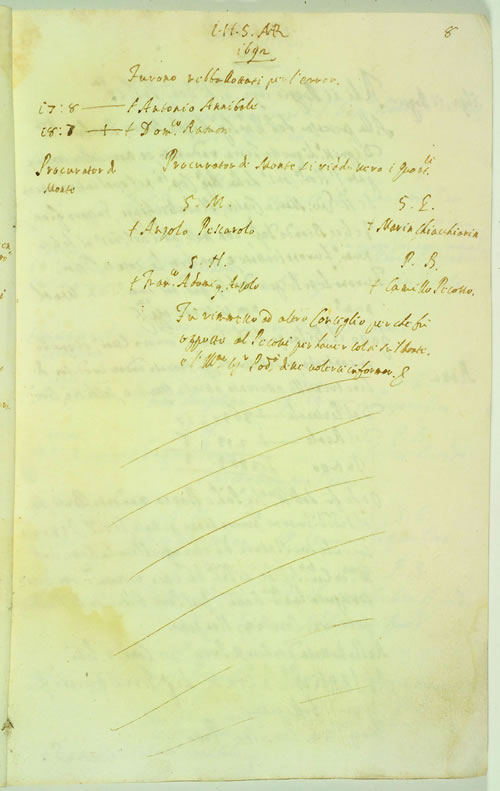 I.H.S. AR 8
1692
Furono reballottati per l'errore.
17: 8 — † Antonio Annibale
18: 7 — † Dom.co Ramon
Procurator di Monte
Procurator di Monte si viddevero i quon.li
S. M. S. E.
† Anzolo Pescarolo † Maria Chiacchiaria
S. H. P. B.
† Fran.co Adami q. Anzolo † Camillo Pecosso.
Fu rimesso ad altro Conseglio perche fu
opposto al per haver tolsi sul Monte.
e l'Ill.mo Sig.r Pod.tà disse volersi informar.